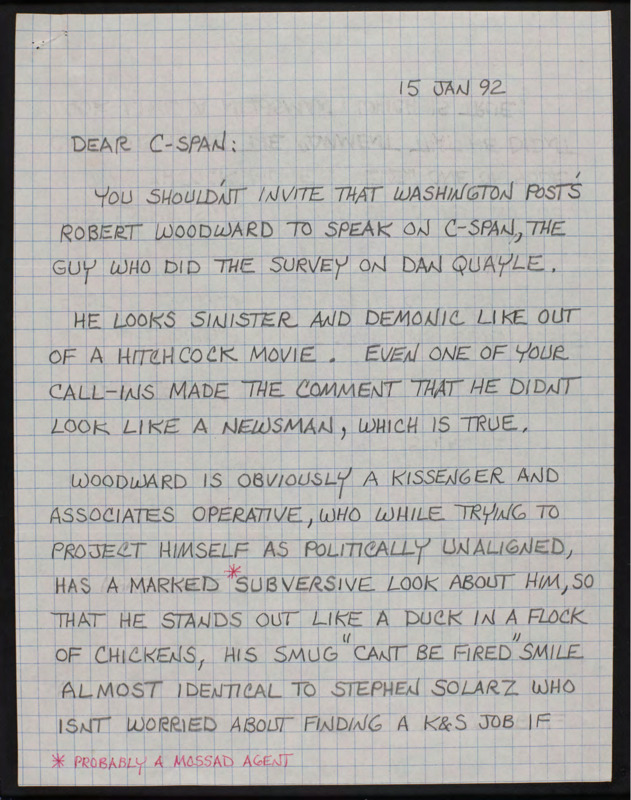 15 JAN 92
DEAR C-SPAN:
YOU SHOULD'NT INVITE THAT WASHINGTON POST'S
ROBERT WOODWARD TO SPEAK ON C-SPAN, THE
GUY WHO DID THE SURVEY ON DAN QUAYLE.
HE LOOKS SINISTER AND DEMONIC LIKE OUT
OF A HITCHCOCK MOVIE. EVEN ONE OF YOUR
CALL-INS MADE THE COMMENT THAT HE DIDNT
LOOK LIKE A NEWSMAN, WHICH IS TRUE.
WOODWARD IS OBVIOUSLY A KISSENGER AND
ASSOCIATES OPERATIVE, WHO WHILE TRYING TO
PROJECT HIMSELF AS POLITICALLY UNALIGNED,
HAS A MARKED *SUBVERSIVE LOOK ABOUT HIM, SO
THAT HE STANDS OUT LIKE A DUCK IN A FLOCK
OF CHICKENS, HIS SMUG "CANT BE FIRED" SMILE
ALMOST IDENTICAL TO STEPHEN SOLARZ WHO
ISNT WORRIED ABOUT FINDING A K&S JOB IF
* PROBABLY A MOSSAD AGENT